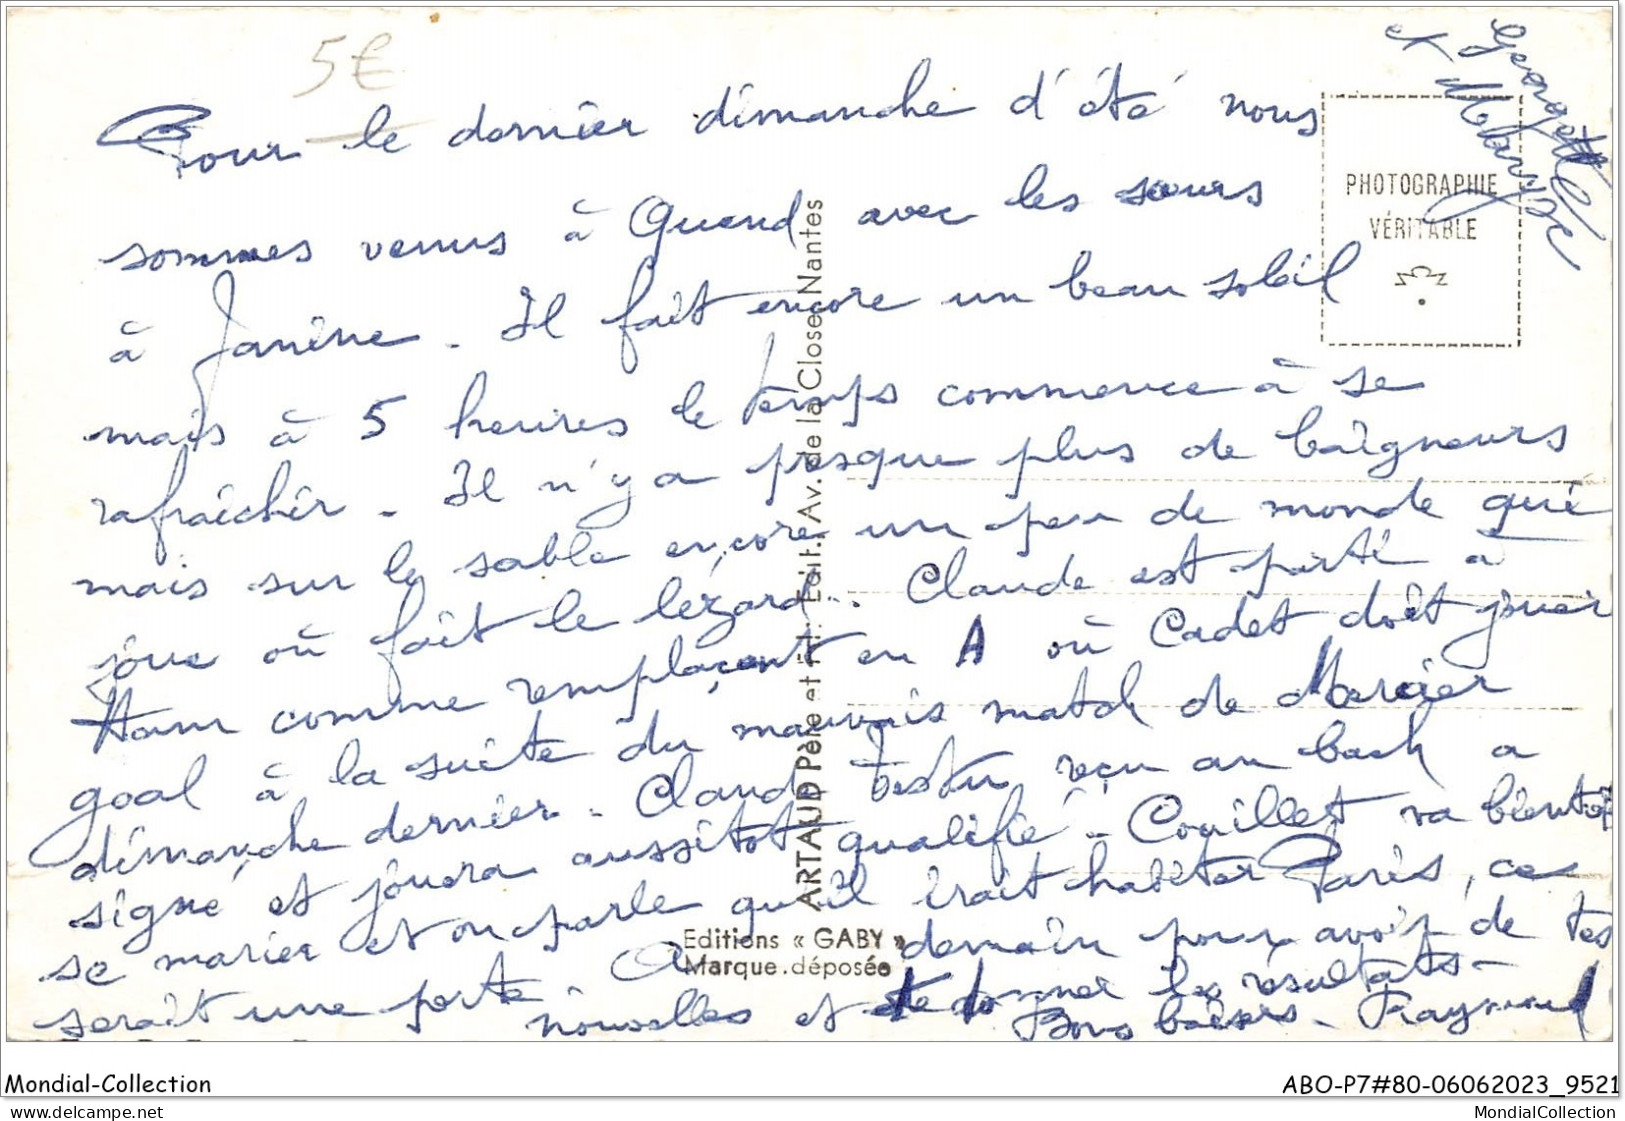 5€
Pour le dernier dimanche d'été nous
sommes venus à Quend avec les sœurs
à Janine. Il fait encore un beau soleil
mais à 5 heures le temps commence à se
rafraîchir. Il n'y a presque plus de baigneurs
mais sur le sable encore un peu de monde qui
joue où fait le lézard. Claude est parti à
Ham comme remplaçant en A où Cadet doit jouer
goal à la suite du mauvais match de Mercier
dimanche dernier. Claude Testu reçu au back a
signé et jouera aussitôt qualifié. Couillet va bientôt
se marier et on parle qu'il irait habiter Paris, ce
serait une perte. A demain pour avoir de tes
nouvelles et te donner les résultats.
Bons baisers. Raymond
Georgette
et Maryse
PHOTOGRAPHIE
VÉRITABLE
ARTAUD Père et Fils Edit. Av. de la Close Nantes
Editions « GABY »
Marque déposée
Mondial-Collection
ABO-P7#80-06062023_9521
www.delcampe.net
MondialCollection